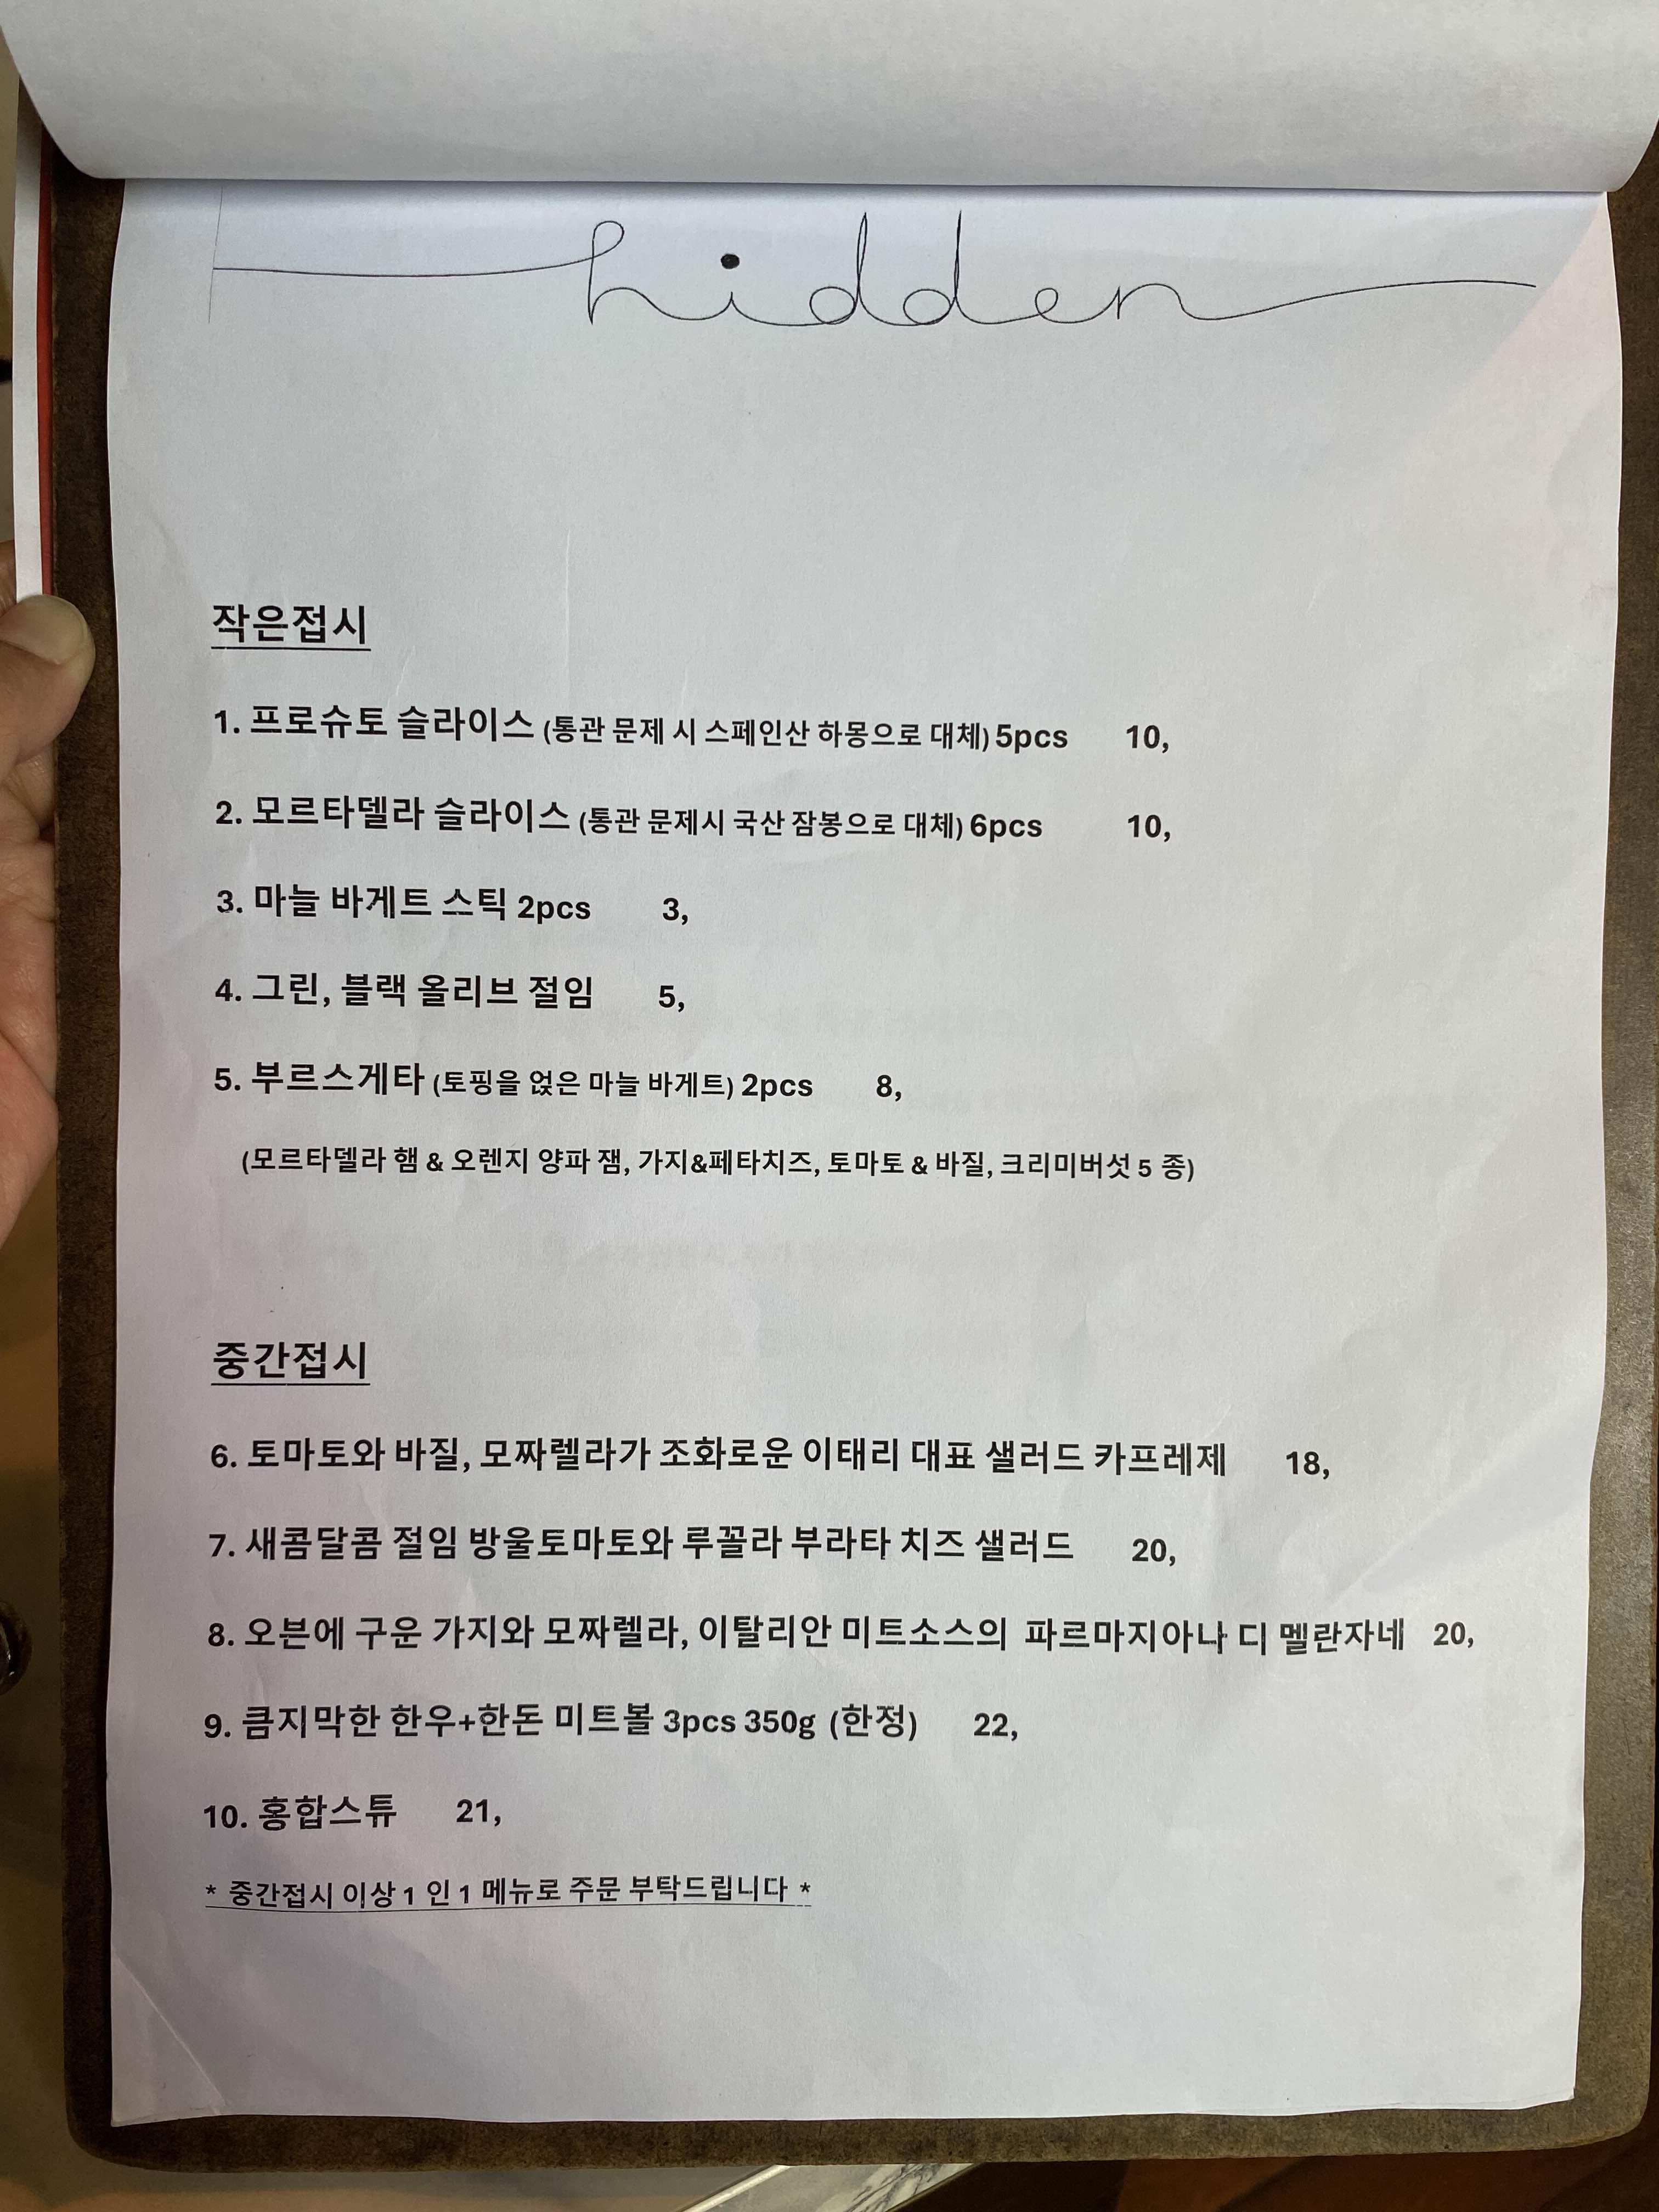 hidden
작은접시
1. 프로슈토 슬라이스 (통관 문제 시 스페인산 하몽으로 대체) 5pcs 10,
2. 모르타델라 슬라이스 (통관 문제시 국산 잠봉으로 대체) 6pcs 10,
3. 마늘 바게트 스틱 2pcs 3,
4. 그린, 블랙 올리브 절임 5,
5. 부르스게타 (토핑을 얹은 마늘 바게트) 2pcs 8,
(모르타델라 햄 & 오렌지 양파 잼, 가지&페타치즈, 토마토 & 바질, 크리미버섯 5 종)
중간접시
6. 토마토와 바질, 모짜렐라가 조화로운 이태리 대표 샐러드 카프레제 18,
7. 새콤달콤 절임 방울토마토와 루꼴라 부라타 치즈 샐러드 20,
8. 오븐에 구운 가지와 모짜렐라, 이탈리안 미트소스의 파르마지아나 디 멜란자네 20,
9. 큼지막한 한우+한돈 미트볼 3pcs 350g (한정) 22,
10. 홍합스튜 21,
* 중간접시 이상 1 인 1 메뉴로 주문 부탁드립니다 *